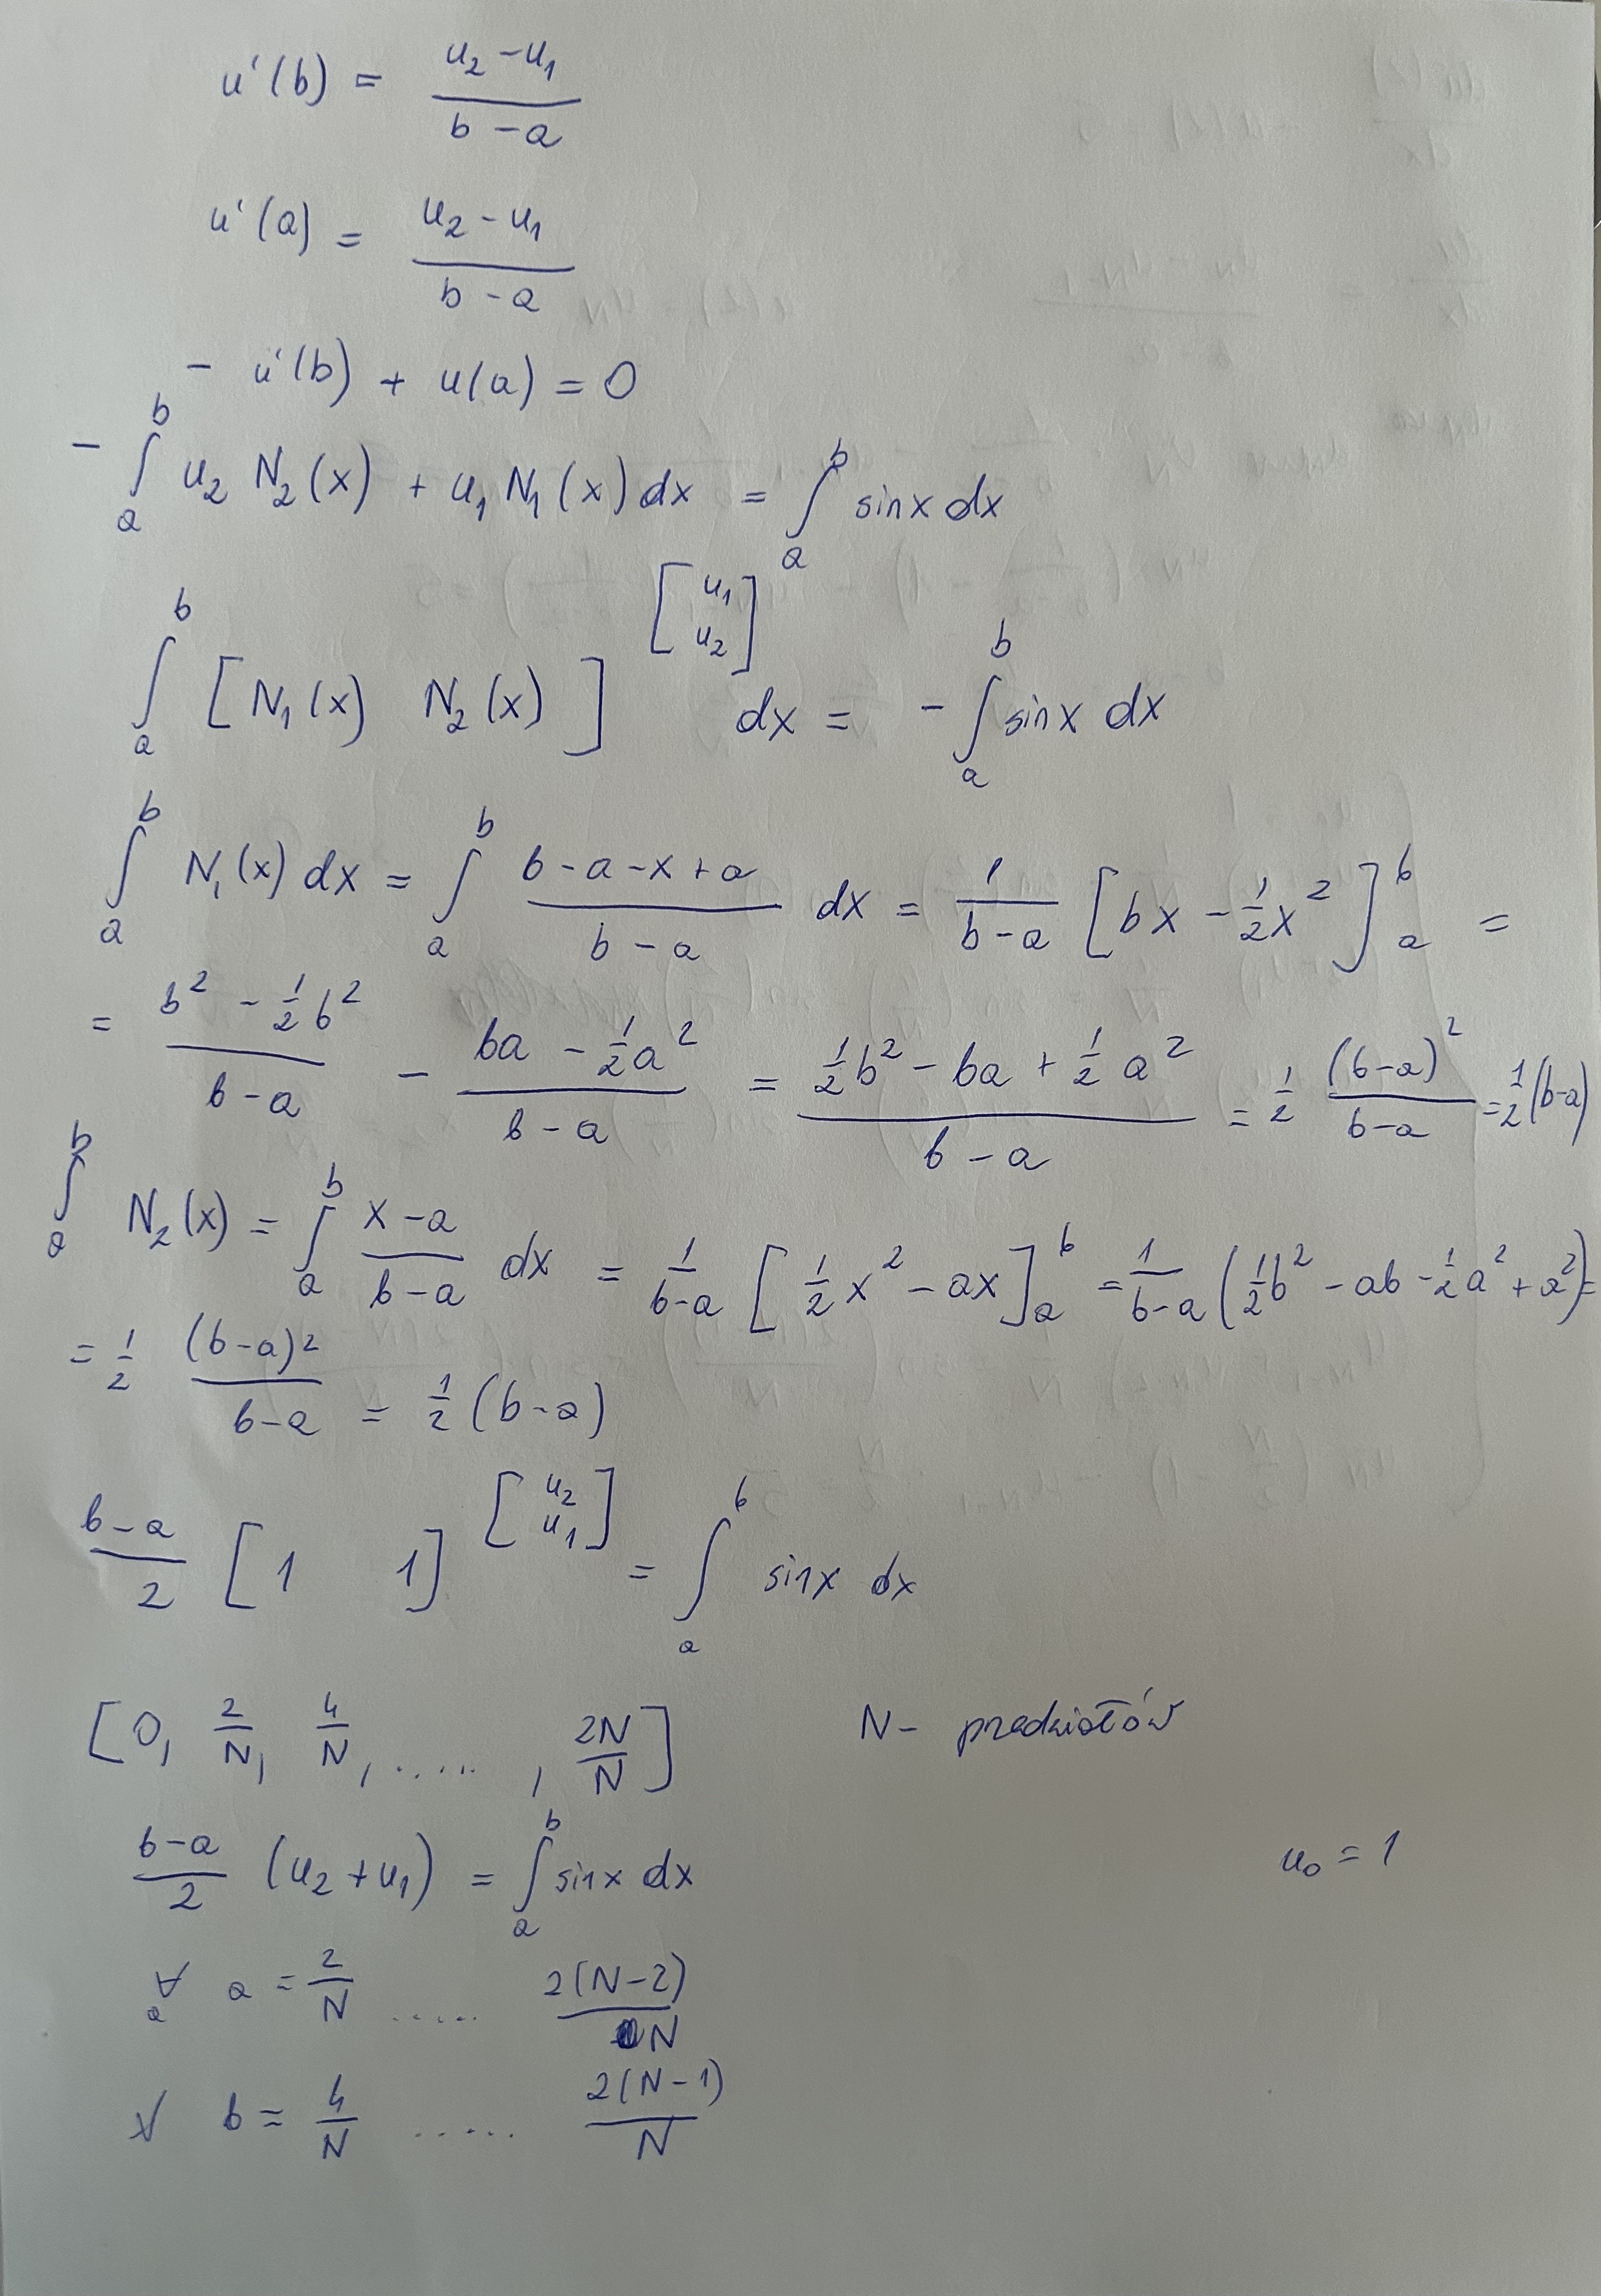 u'(b) = \frac{u_2 - u_1}{b - a}
u'(a) = \frac{u_2 - u_1}{b - a}
- u'(b) + u(a) = 0
- \int_a^b u_2 N_2(x) + u_1 N_1(x) dx = \int_a^b sin x dx
\int_a^b [N_1(x) N_2(x)] [u_1 u_2] dx = - \int_a^b sin x dx
\int_a^b N_1(x) dx = \int_a^b \frac{b - a - x + a}{b - a} dx = \frac{1}{b - a} [bx - \frac{1}{2}x^2]_a^b =
= \frac{b^2 - \frac{1}{2}b^2}{b - a} - \frac{ba - \frac{1}{2}a^2}{b - a} = \frac{\frac{1}{2}b^2 - ba + \frac{1}{2}a^2}{b - a} = \frac{1}{2} \frac{(b-a)^2}{b-a} = \frac{1}{2}(b-a)
\int_a^b N_2(x) = \int_a^b \frac{x - a}{b - a} dx = \frac{1}{b-a} [\frac{1}{2}x^2 - ax]_a^b = \frac{1}{b-a} (\frac{1}{2}b^2 - ab - \frac{1}{2}a^2 + a^2) =
= \frac{1}{2} \frac{(b-a)^2}{b-a} = \frac{1}{2}(b-a)
\frac{b-a}{2} [1 1] [u_2 u_1] = \int_a^b sin x dx
[0, \frac{2}{N}, \frac{4}{N}, ....., \frac{2N}{N}] N - przedziałów
\frac{b-a}{2} (u_2 + u_1) = \int_a^b sin x dx u_0 = 1
∀_a a = \frac{2}{N} ..... \frac{2(N-2)}{N}
∀ b = \frac{4}{N} ..... \frac{2(N-1)}{N}